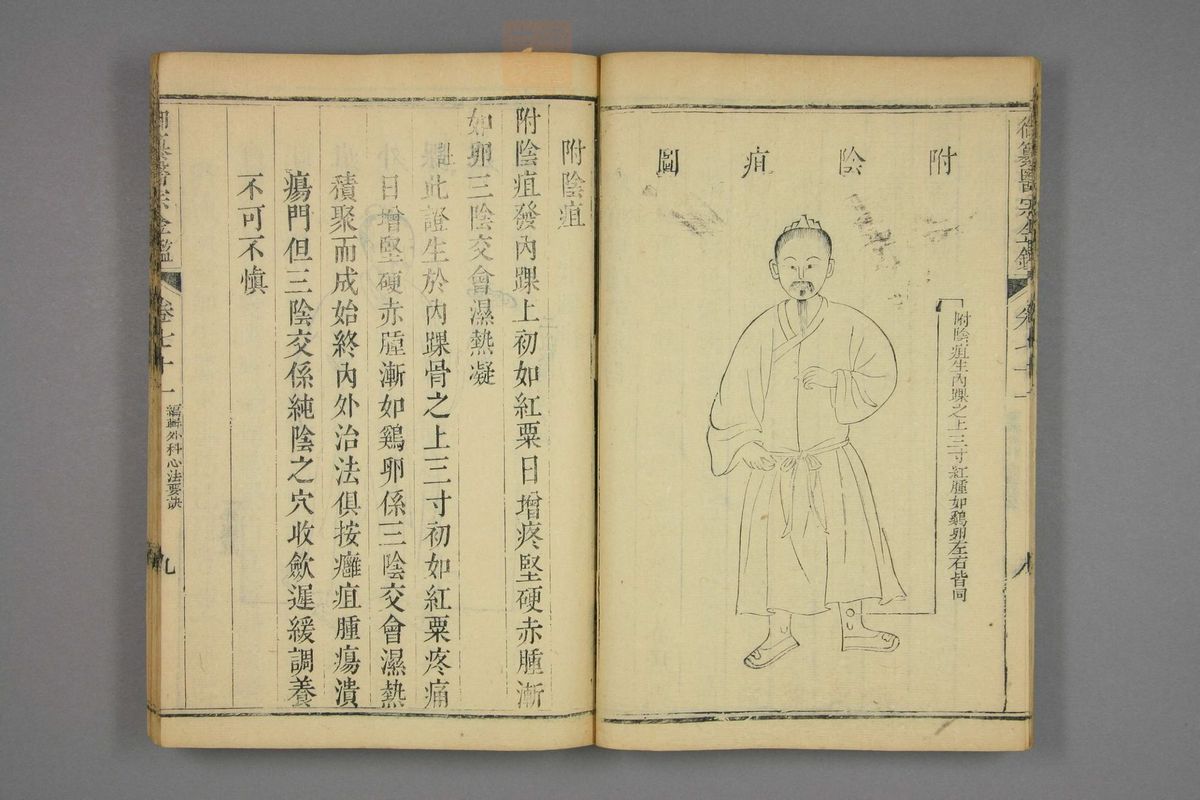 附陰疽圖
附陰疽生內踝之上三寸紅腫如鷄卵左右皆同
御纂醫宗金鑑
卷七十一
八
附陰疽
附陰疽發內踝上初如紅粟日增疼堅硬赤腫漸
如卵三陰交會濕熱凝
此證生於內踝骨之上三寸初如紅粟疼痛
日增堅硬赤腫漸如鷄卵係三陰交會濕熱
積聚而成始終內外治法俱按癰疽腫瘍潰
瘍門但三陰交係純陰之穴收歛遲緩調養
不可不慎
御纂醫宗金鑑
卷七十一
編輯外科心法要訣
九